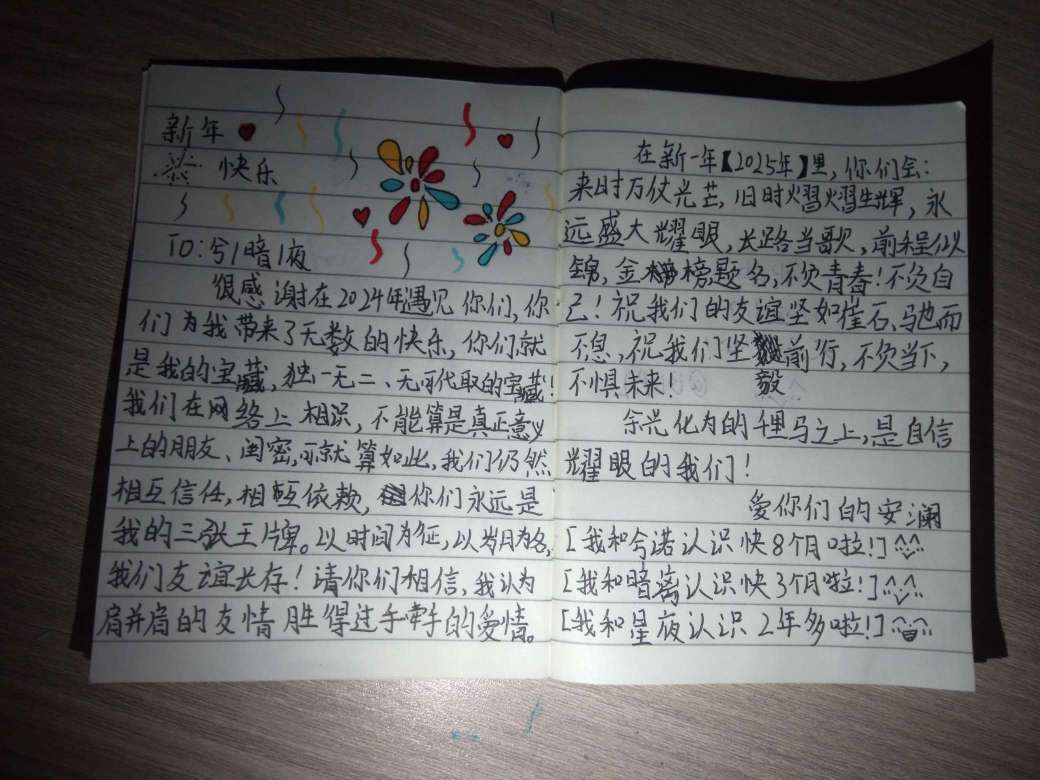 新年
快乐
TO：兮/暗/夜
很感谢在2024年遇见你们，你
们为我带来了无数的快乐，你们就
是我的宝藏，独一无二、无可代取的宝藏！
我们在网络上相识，不能算是真正意义
上的朋友、闺密，可就算如此，我们仍然
相互信任，相互依赖，你们永远是
我的三张王牌。以时间为征，以岁月为名，
我们友谊长存！请你们相信，我认为
肩并肩的友情胜得过手牵手的爱情。
在新一年【2025年】里，你们会：
来时万仗光芒，旧时熠熠生辉，永
远盛大耀眼，长路当歌，前程似
锦，金榜题名，不负青春！不负自
己！祝我们的友谊坚如磐石、驰而
不息，祝我们坚毅前行，不负当下，
不惧未来！
余光化为的千里马之上，是自信
耀眼的我们！
爱你们的安澜
[我和兮诺认识快8个月啦！]
[我和暗离认识快3个月啦！]
[我和星夜认识2年多啦！]